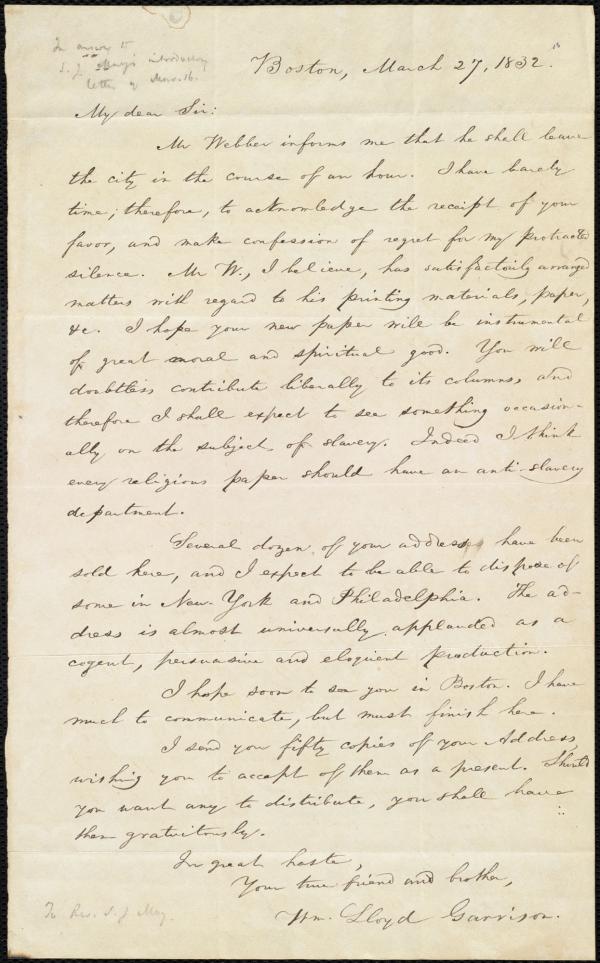 In answer to
S. J. May's introductory
letter of Mar. 16.
Boston, March 27, 1832.
My dear Sir:
Mr Webber informs me that he shall leave
the city in the course of an hour. I have barely
time, therefore, to acknowledge the receipt of your
favor, and make confession of regret for my protracted
silence. Mr W., I believe, has satisfactorily arranged
matters with regard to his printing materials, paper,
&c. I hope your new paper will be instrumental
of great moral and spiritual good. You will
doubtless contribute liberally to its columns, and
therefore I shall expect to see something occasion-
ally on the subject of slavery. Indeed I think
every religious paper should have an anti-slavery
department.
Several dozen of your address have been
sold here, and I expect to be able to dispose of
some in New-York and Philadelphia. The ad-
dress is almost universally applauded as a
cogent, persuasive and eloquent production.
I hope soon to see you in Boston. I have
much to communicate, but must finish here.
I send you fifty copies of your Address,
wishing you to accept of them as a present. Should
you want any to distribute, you shall have
them gratuitously.
In great haste,
Your true friend and brother,
Wm. Lloyd Garrison.
To Rev. S. J. May.